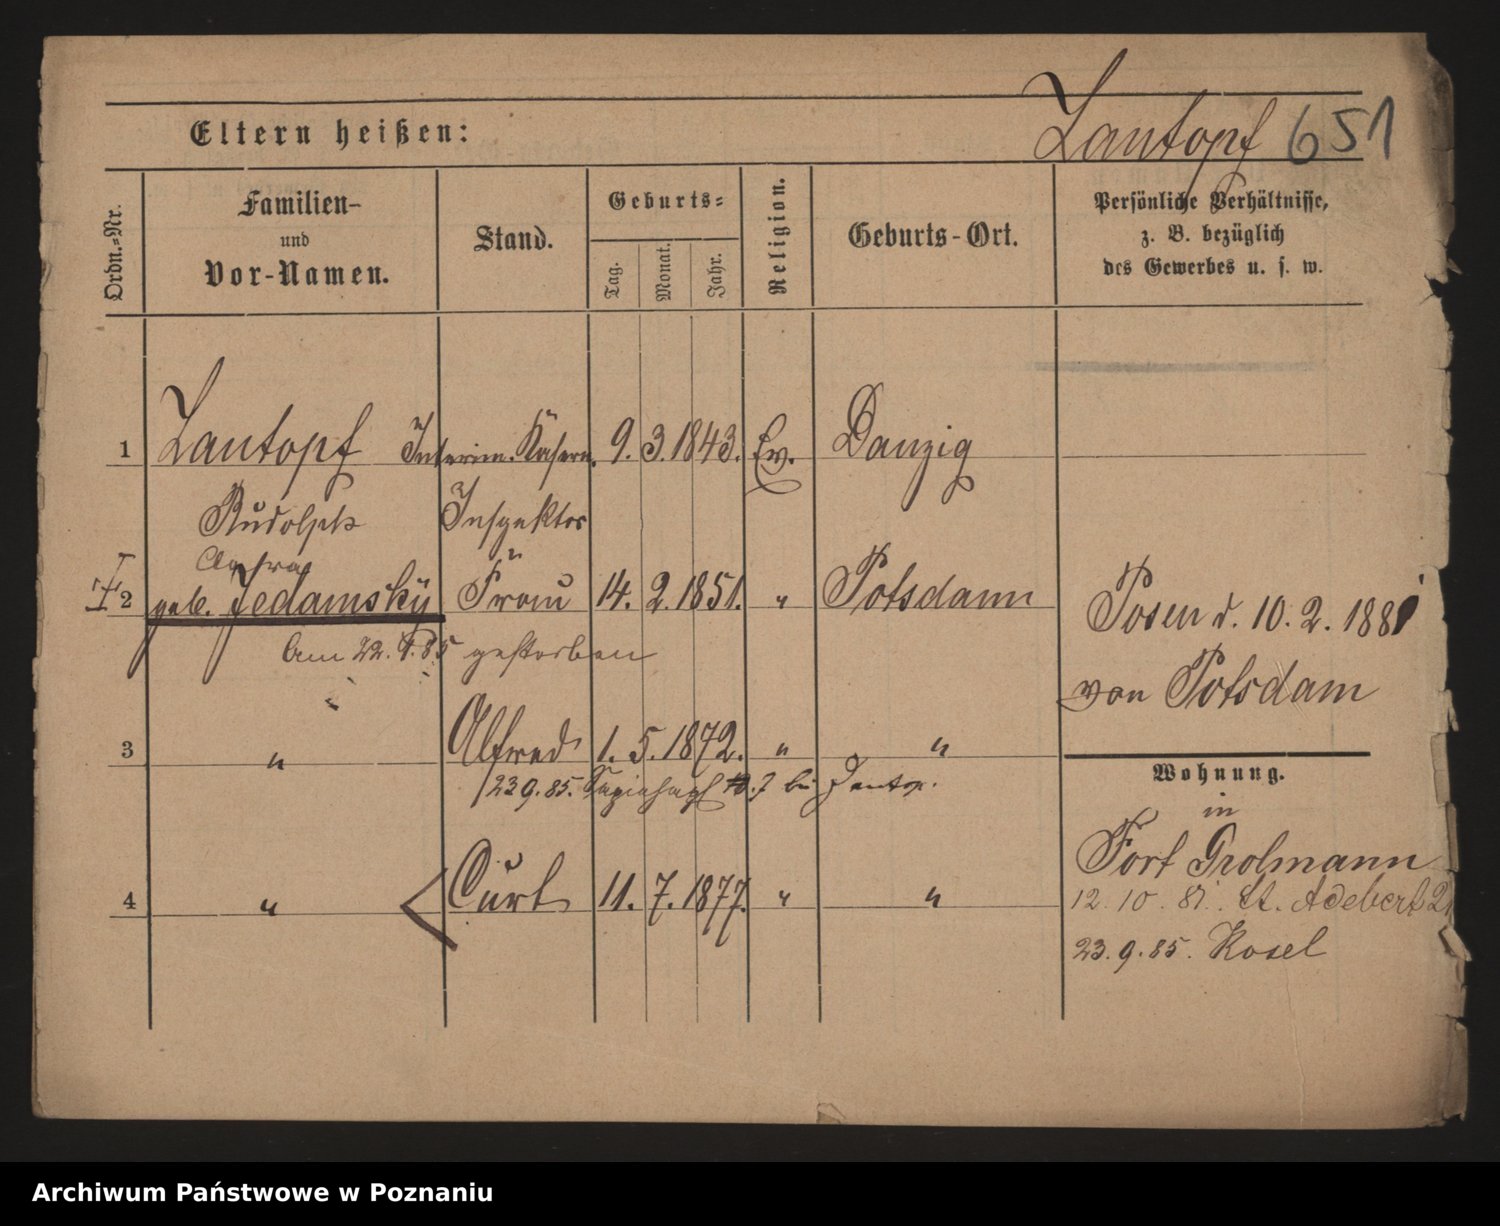 Eltern heißen:
Lantopf 651
Ordn.=Nr.
Familien-
und
Vor-Namen.
Stand.
Geburts=
Tag.
Monat.
Jahr.
Religion.
Geburts-Ort.
Persönliche Verhältnisse,
z. B. bezüglich
des Gewerbes u. s. w.
1 Lantopf Interim. Kasern. 9. 3. 1843. Ev. Danzig
Rudolph Inspektor
2 geb. Jedamsky Frau 14. 2. 1851. " Potsdam
Am 22. 9. 85 gestorben
Posen d. 10. 2. 1881
von Potsdam
3 " Alfred 1. 5. 1872. " "
23 9. 85.
Wohnung.
in
Fort Grolmann
4 " Curt 11. 7. 1877. " "
12. 10. 81. St. Adebert 2
23. 9. 85. Kosel
Archiwum Państwowe w Poznaniu